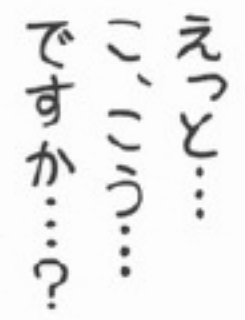 えっと…
こ、こう…
ですか…？